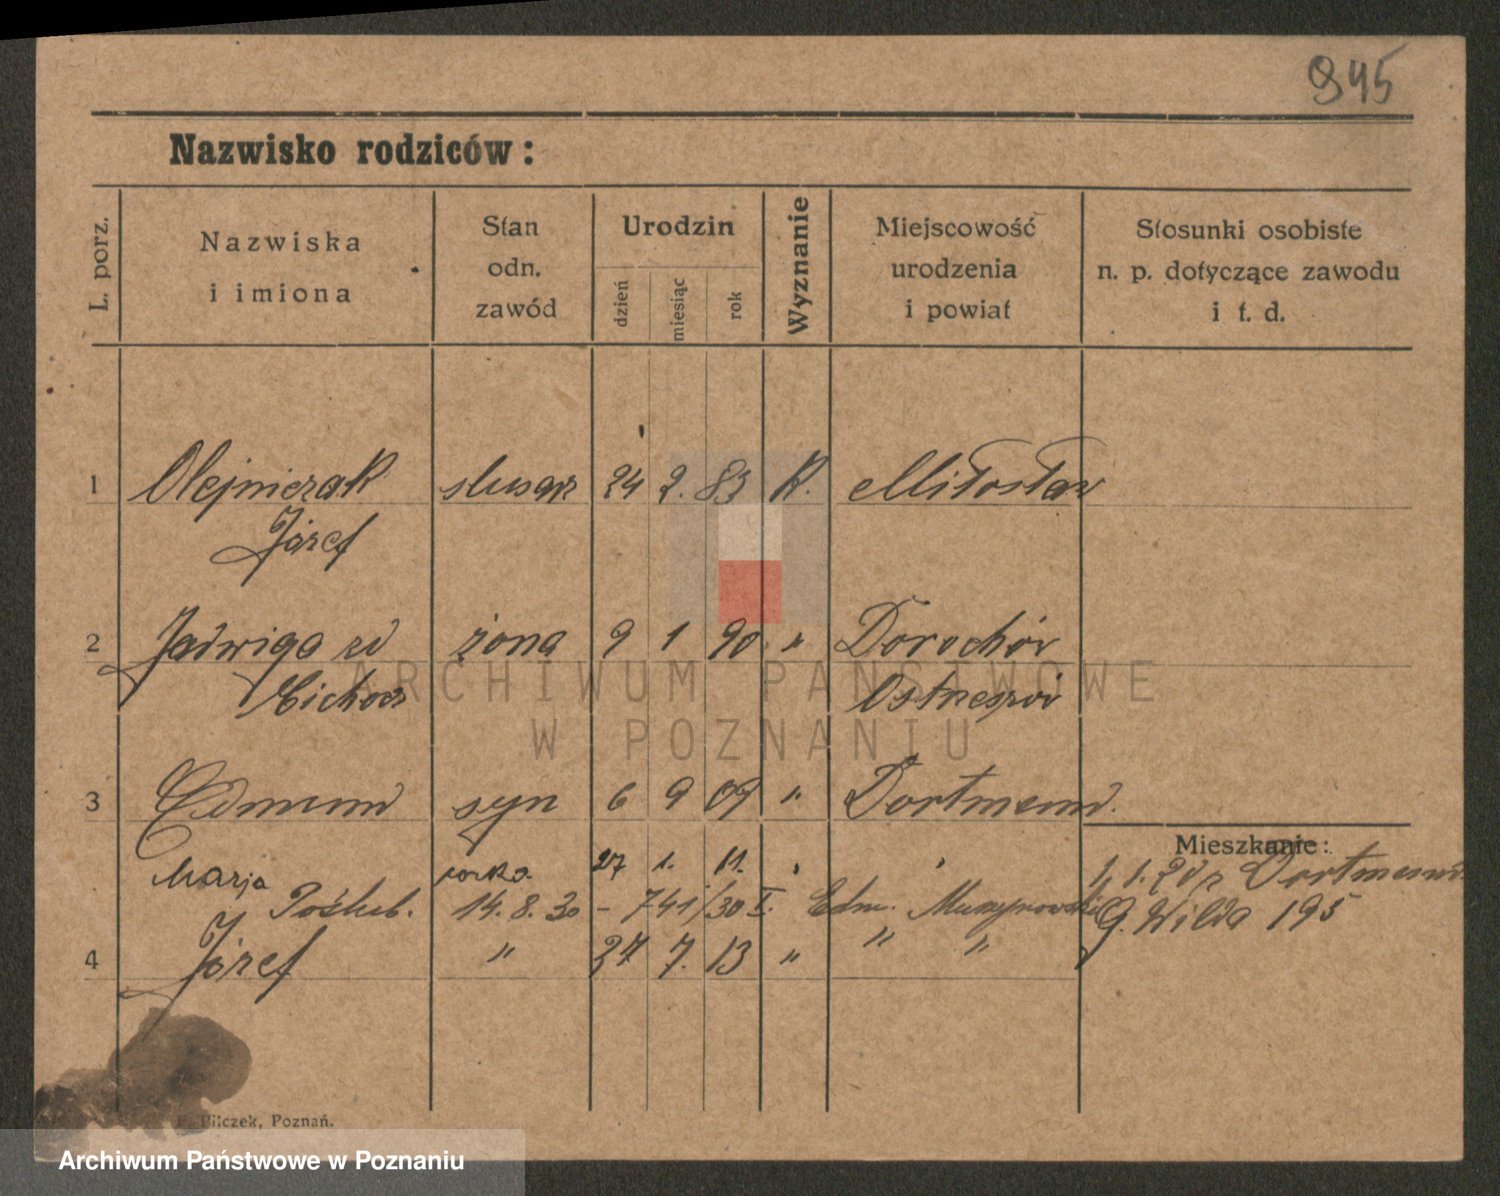 945
Nazwisko rodziców:
L. porz.
Nazwiska
i imiona
Stan
odn.
zawód
Urodzin
dzień
miesiąc
rok
Wyznanie
Miejscowość
urodzenia
i powiat
Stosunki osobiste
n. p. dotyczące zawodu
i t. d.
1 Olejniczak ślusarz 24 2. 83 K. Miłosław
Józef
2 Jadwiga zd żona 9 1 90. " Dorochów
Cichosz
3 Edmund syn 6 9 09 " Dortmund.
Mieszkanie:
Marja córka 27 1. 11. " " 1. 1. 20 z Dortmund.
Poślub. 14. 8. 30 - 741/30 I. Edm. G. Wilda 195
4 Józef " 27 7. 13 " " "
F. Pilczek, Poznań.
ARCHIWUM PAŃSTWOWE
W POZNANIU
Archiwum Państwowe w Poznaniu